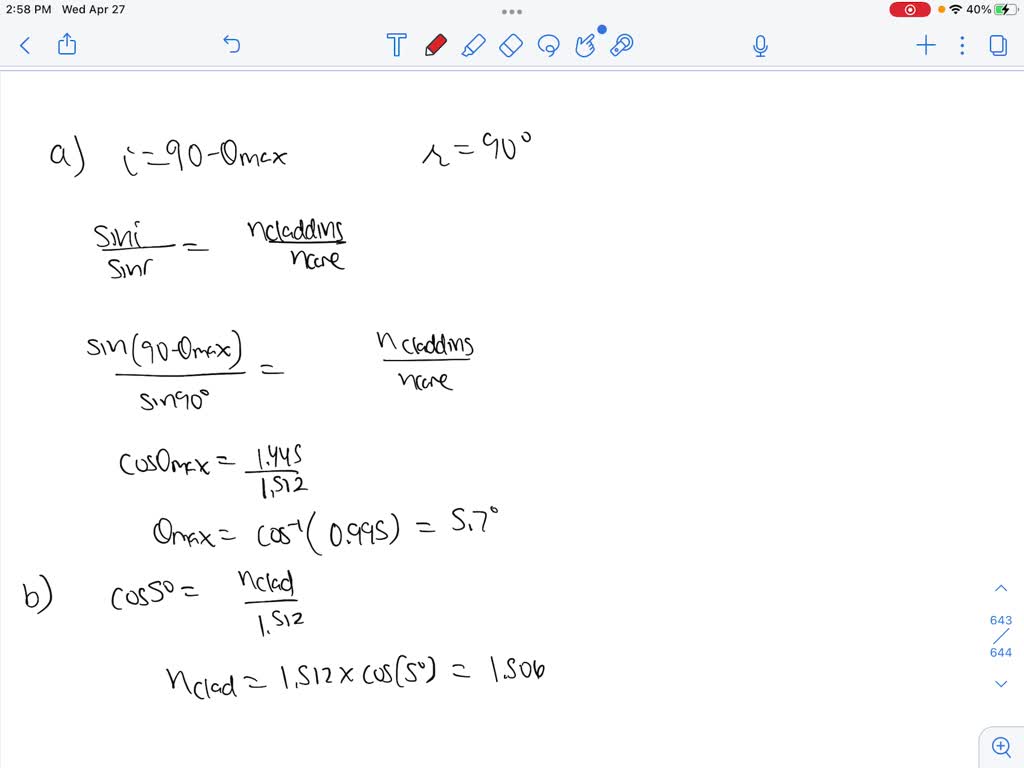 2:58 PM Wed Apr 27
40%
T
a) i=90-θmax r=90°
sin i / sin r = ncladding / ncore
sin(90-θmax) / sin90° = ncladding / ncore
cosθmax = 1.445 / 1.512
θmax = cos⁻¹(0.995) = 5.7°
b) cos5° = nclad / 1.512
nclad = 1.512 x cos(5°) = 1.506
643
644